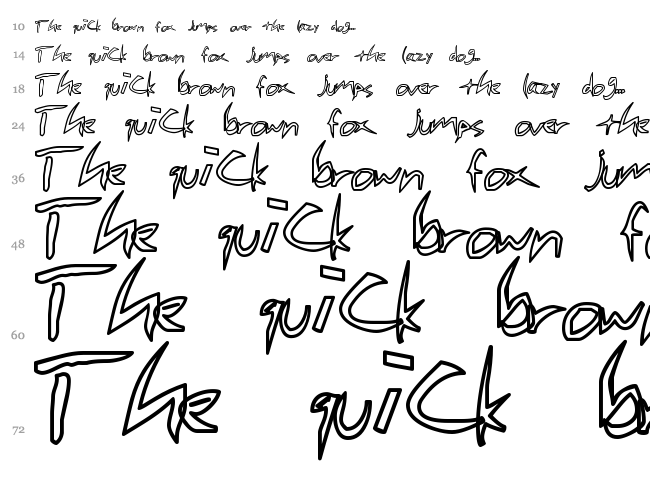 10 The quiCk brown fox jumps over the lazy dog...
14 The quiCk brown fox jumps over the lazy dog...
18 The quiCk brown fox jumps over the lazy dog...
24 The quiCk brown fox jumps over the
36 The quiCk brown fox jum
48 The quiCk brown fo
60 The quiCk brown
72 The quiCk b